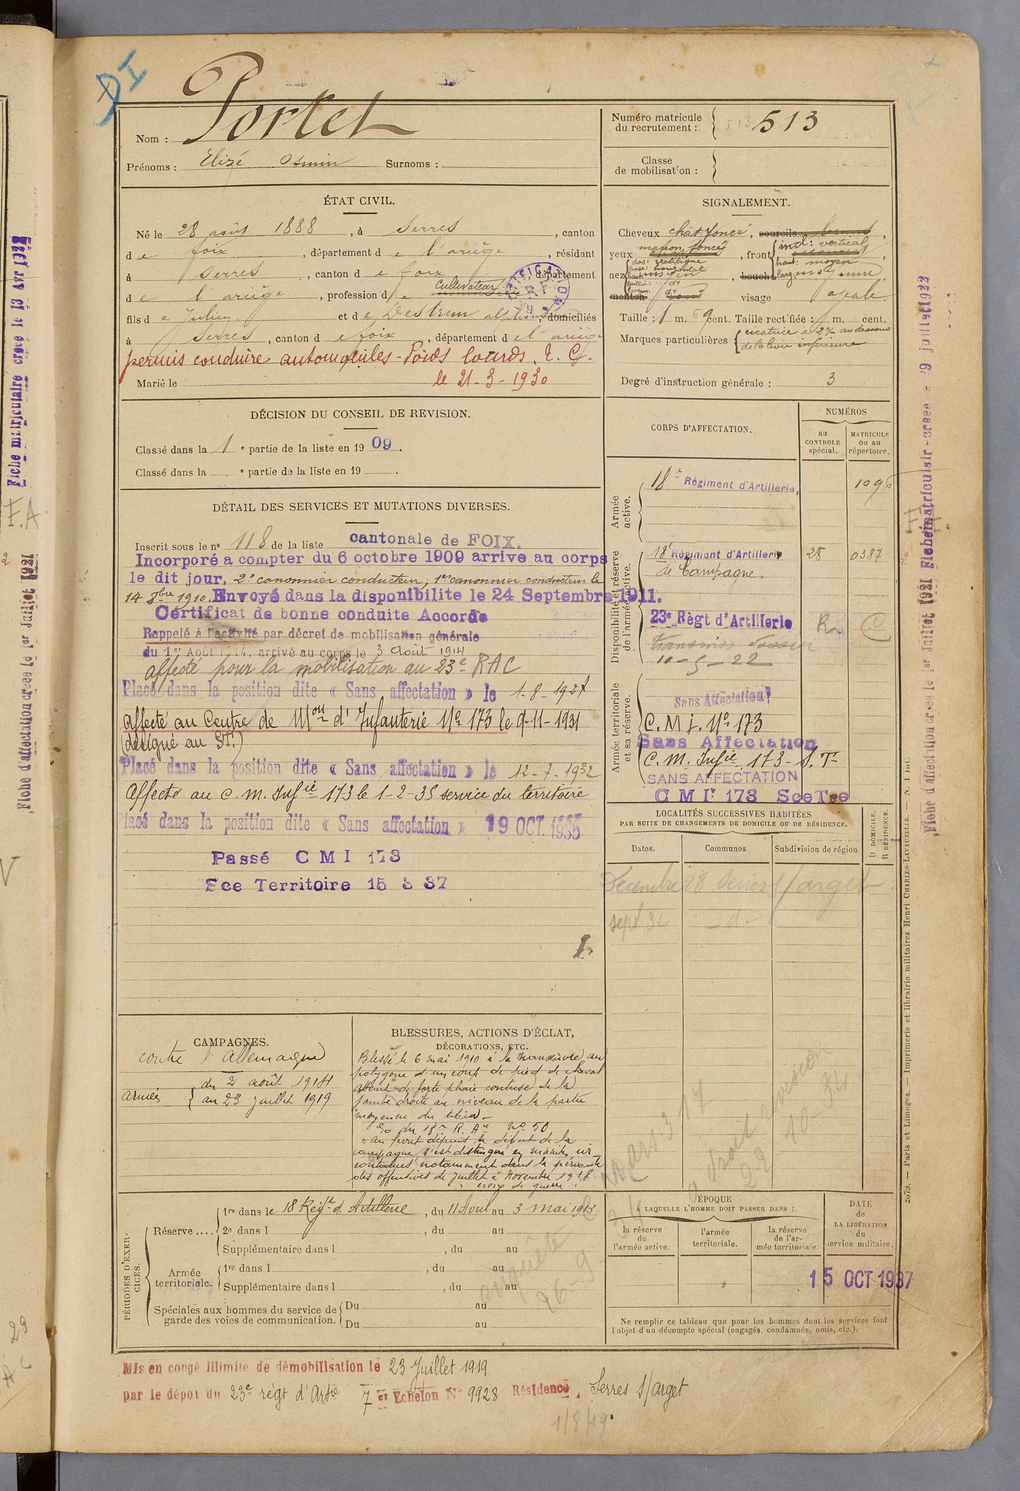 DI
Nom : Portet
Prénoms : Elizé Osmin Surnoms :
Numéro matricule
du recrutement : 513
Classe
de mobilisation :
ÉTAT CIVIL.
Né le 28 août 1888, à Serres, canton
de foix, département de l'ariège, résidant
à Serres, canton de foix, département
de l'ariège, profession de Cultivateur
fils de Julien et de Destrem domiciliés
à Serres, canton de foix, département de l'ariège
permis conduire automobiles - Poids lourds. T. C.
Marié le le 21-3-1930
SIGNALEMENT.
Cheveux chat. foncé, sourcils
yeux marron foncé, front incl: vertical
haut: moyen
nez dos: rectiligne
base: horizontal
bouche
menton visage ovale
Taille : 1 m. 69 cent. Taille rectifiée : 1 m. cent.
Marques particulières cicatrice à 2% au dessous
de la lèvre inférieure
Degré d'instruction générale : 3
DÉCISION DU CONSEIL DE REVISION.
Classé dans la 1e partie de la liste en 1909.
Classé dans la e partie de la liste en 19 .
CORPS D'AFFECTATION.
NUMÉROS
au
CONTROLE
spécial.
MATRICULE
ou au
répertoire.
Armée
active.
18e Régiment d'Artillerie,
Disponibilité et réserve
de l'armée active.
18e Régiment d'Artillerie 25 0387
de Campagne.
23e Règt d'Artillerie R C
10-5-22
Armée territoriale
et sa réserve.
Sans Affectation
C. M. I. No 173
Sans Affectation
C. M. Infie 173 - S. T.
SANS AFFECTATION
C M I: 173 Sce Tre
DÉTAIL DES SERVICES ET MUTATIONS DIVERSES.
Inscrit sous le no 118 de la liste cantonale de FOIX.
Incorporé a compter du 6 octobre 1909 arrive au corps
le dit jour, 2e canonnier conducteur, 1er canonnier conducteur le
14 1910. Envoyé dans la disponibilite le 24 Septembre 1911.
Certificat de bonne conduite Accorde
Rappelé à l'activité par décret de mobilisation générale
du 1er Août 1914, arrivé au corps le 3 août 1914
affecté pour la mobilisation au 23e RAC
Placé dans la position dite « Sans affectation » le 1-8-1927
Affecté au Centre de Mon d'Infanterie No 173 le 9-11-1931
(désigné au ST.)
Placé dans la position dite « Sans affectation » le 12-2-1932
Affecté au C. M. Infie 173 le 1-2-35 service du territoire
Placé dans la position dite « Sans affectation » 19 OCT. 1935
Passé C M I 173
Sce Territoire 15 3 37
LOCALITÉS SUCCESSIVES HABITÉES
PAR SUITE DE CHANGEMENTS DE DOMICILE OU DE RÉSIDENCE.
Dates. Communes Subdivision de région.
D DOMICILE.
R RÉSIDENCE.
Décembre 28 Serres s/arget
sept 34 - d -
CAMPAGNES.
contre l'Allemagne
armées du 2 août 1914
au 23 juillet 1919
BLESSURES, ACTIONS D'ÉCLAT,
DÉCORATIONS, ETC.
Blessé le 6 mai 1910 à la manœuvre au
polygone d'un coup de pied de cheval
atteint de forte plaie contuse de la
jambe droite au niveau de la partie
moyenne du tibia.
du 18e R. A. No 50
"au front depuis le début de la
campagne, s'est distingué en maintes cir-
constances notamment dans la période
des offensives de juillet à novembre 1918
croix de guerre"
PÉRIODES D'EXER-
CICES.
Réserve .... 1re dans le 18 Regt d'Artillerie, du 11 Avril au 3 mai 1913
2e dans l , du au
Supplémentaire dans l , du au
Armée
territoriale. 1re dans l , du au
Supplémentaire dans l , du au
Spéciales aux hommes du service de
garde des voies de communication. Du au
Du au
ÉPOQUE
A LAQUELLE L'HOMME DOIT PASSER DANS :
la réserve
de
l'armée active.
l'armée
territoriale.
la réserve
de l'ar-
mée territoriale.
DATE
de
LA LIBÉRATION
du
service militaire.
15 OCT 1937
Ne remplir ce tableau que pour les hommes dont les services font
l'objet d'un décompte spécial (engagés, condamnés, omis, etc.).
Mis en congé illimité de démobilisation le 23 Juillet 1919
par le dépot du 23e règt d'Artie 7 er Echelon No 9928 Résidence, Serres s/arget
1/8/19.
Fiche matriculaire créée le
Fiche d'affectation créée le 1er Juillet 1921
2079. — Paris et Limoges. — Imprimerie et librairie militaires Henri CHARLES-LAVAUZELLE.